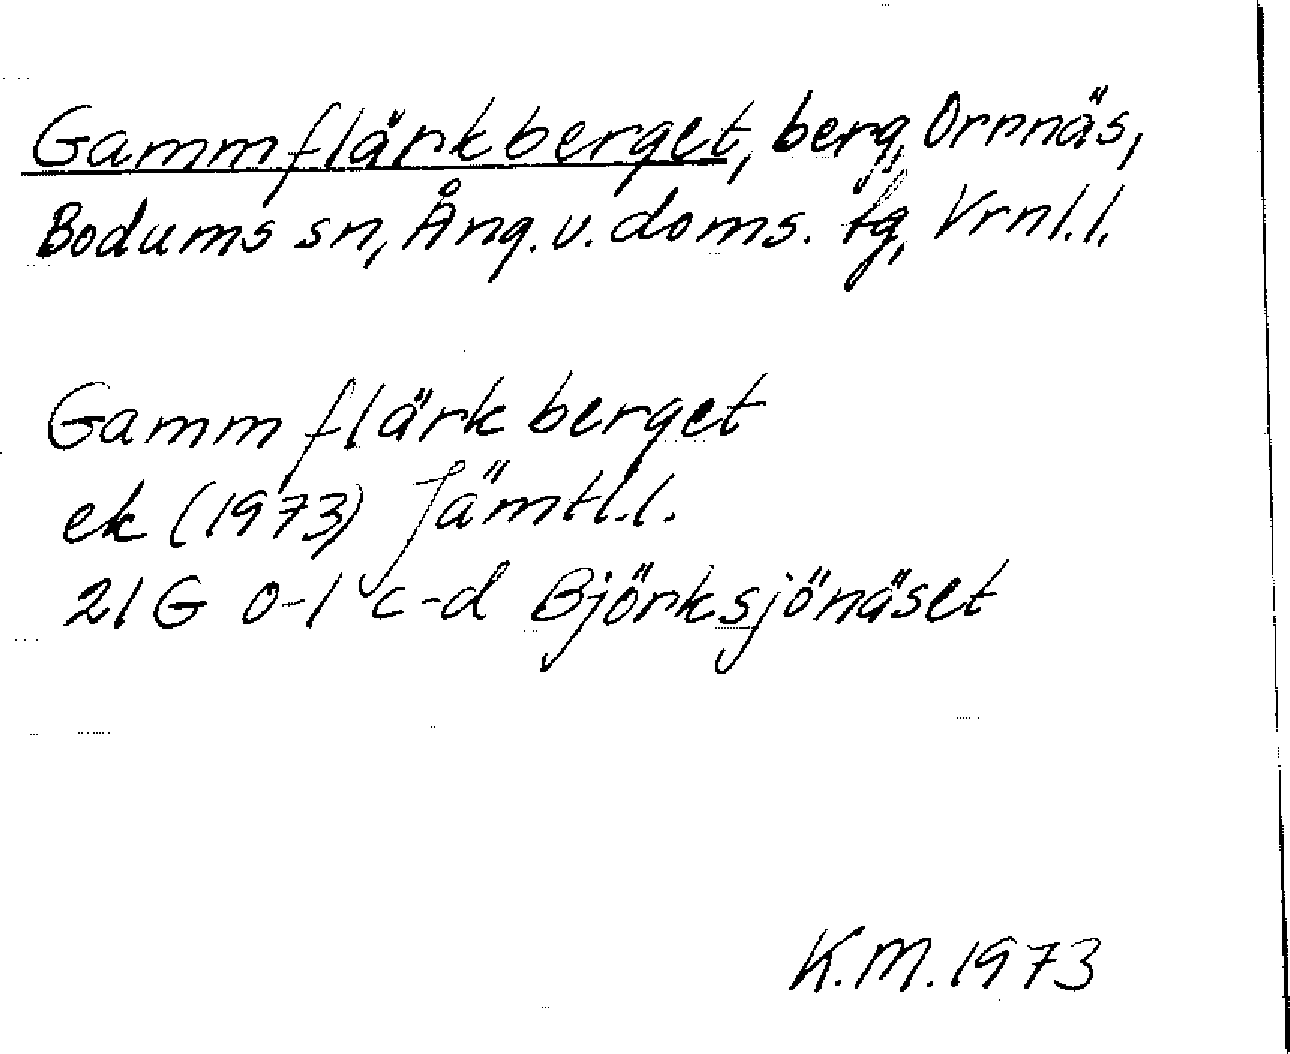 Gammflärkberget, berg, Orrnäs,
Bodums sn, Ång. v. doms. tg, Vrnl.l.
Gammflärkberget
ek (1973) Jämtl.l.
21G 0-1 c-d Björksjönäset
K.M. 1973